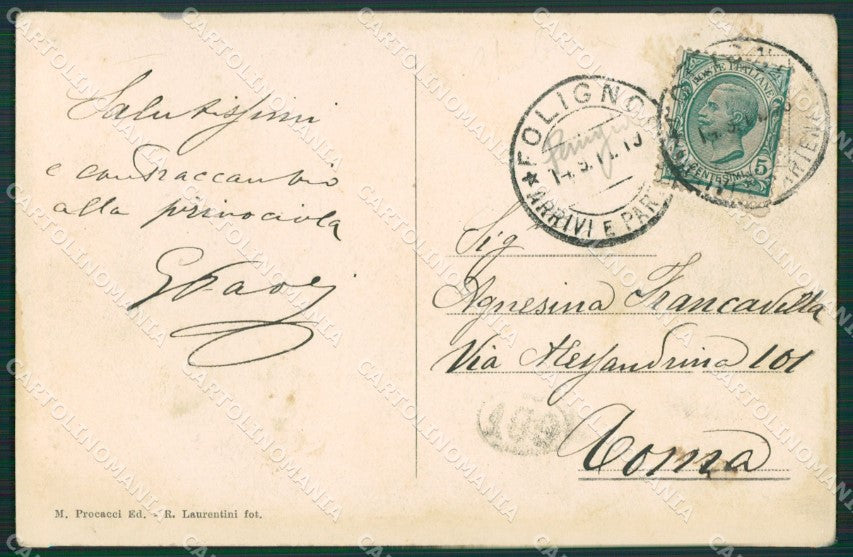 Salutissimi
e contraccambio
alla
FOLIGNO
14.9.11.10
ARRIVI E PAR
POSTE ITALIANE
CENTESIMI 5
Sig
Agnesina Francavilla
Via Alessandrina 101
Roma
109
M. Procacci Ed. - R. Laurentini fot.
CARTOLINOMANIA